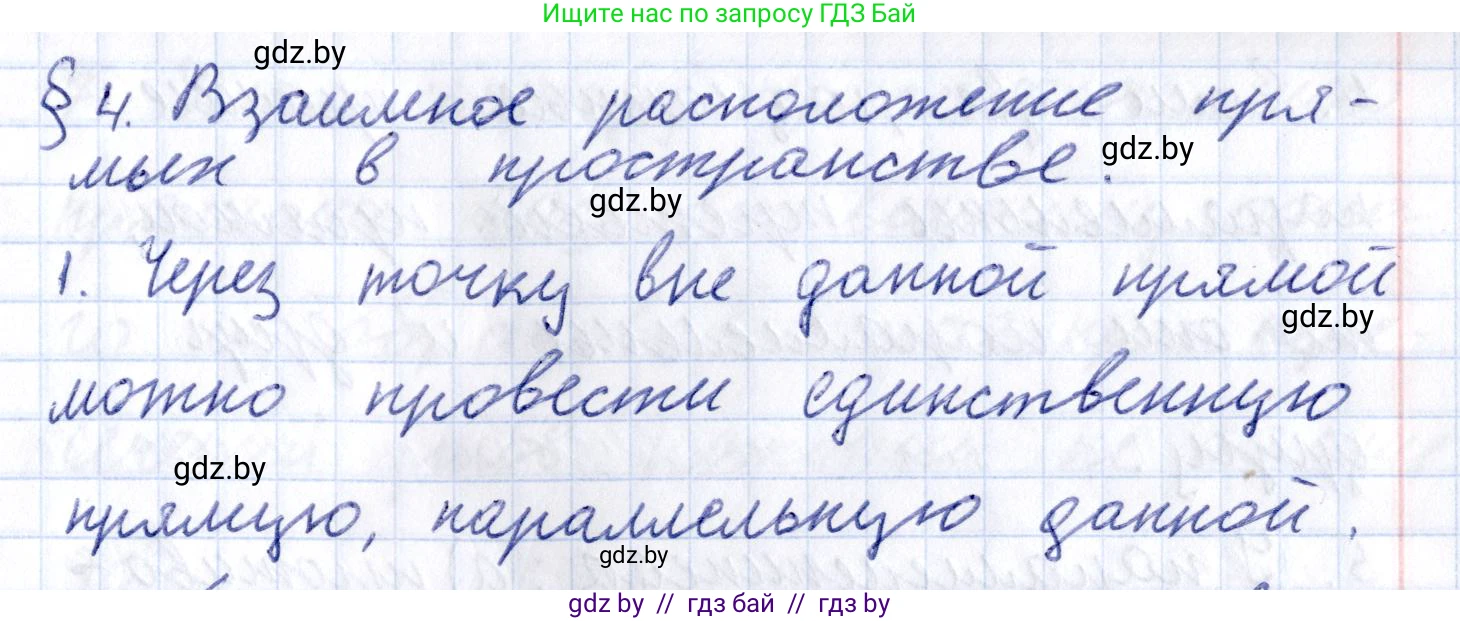 Ищите нас по запросу ГДЗ Бай
gdz.by
§ 4. Взаимное расположение пря-
мых в пространстве.
gdz.by
gdz.by
1. Через точку вне данной прямой
gdz.by
можно провести единственную
gdz.by
прямую, параллельную данной.
gdz.by
gdz by // гдз бай // гдз by